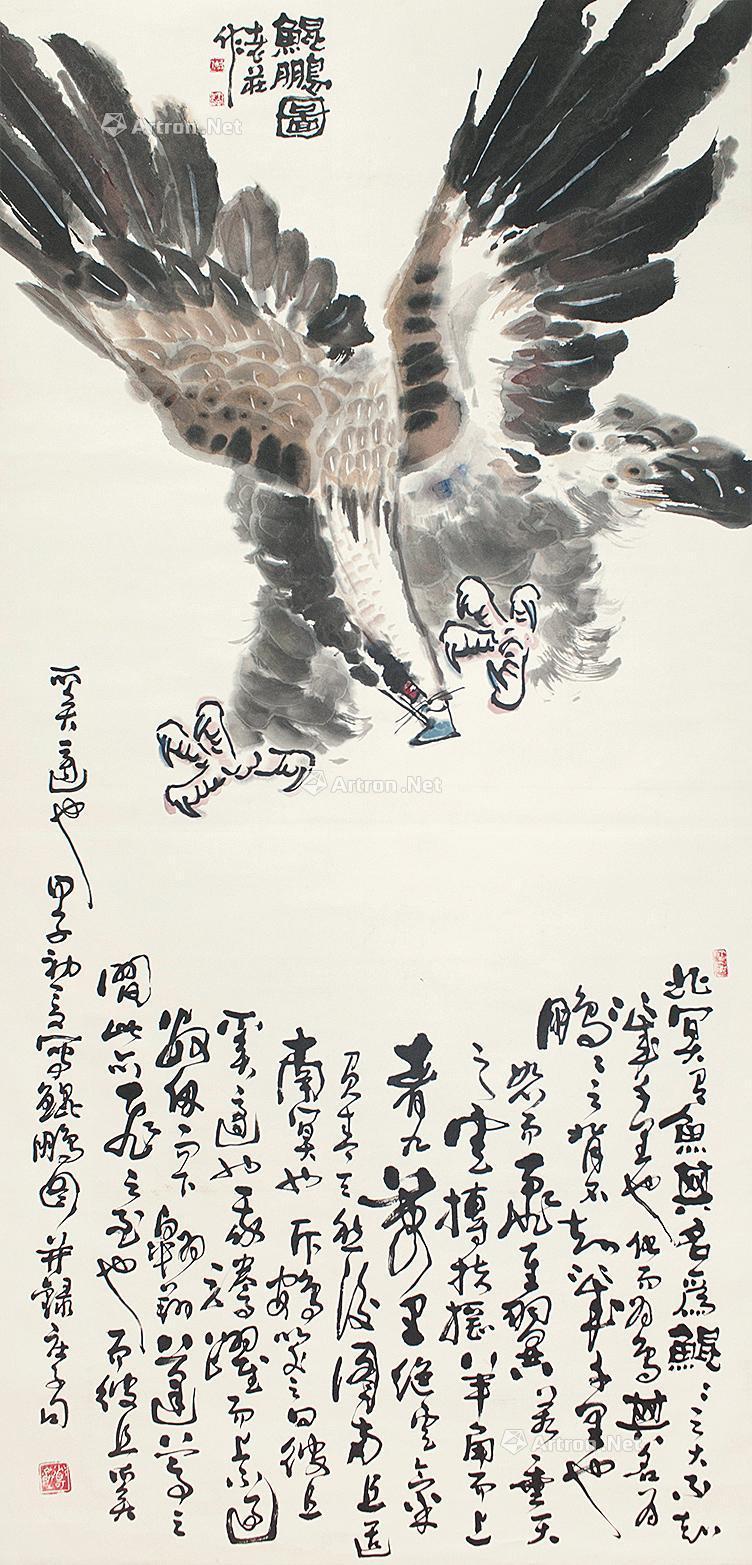 鯤鵬圖
老莊
作
Artron.Net
Artron.Net
北冥有魚其名爲鯤〻之大不知
幾千里也化而爲鳥其名爲
鵬〻之背不知幾千里也
怒而飛其翼若垂天
之雲摶扶搖羊角而上
者九萬里絶雲氣
負青天然後圖南且適
南冥也斥鴳笑之曰彼且
奚適也我騰躍而上不過
數仞而下翱翔蓬蒿之
間此亦飛之至也而彼且奚
奚適也 甲子初夏寫鯤鵬图并録庄子句
Artron.Net